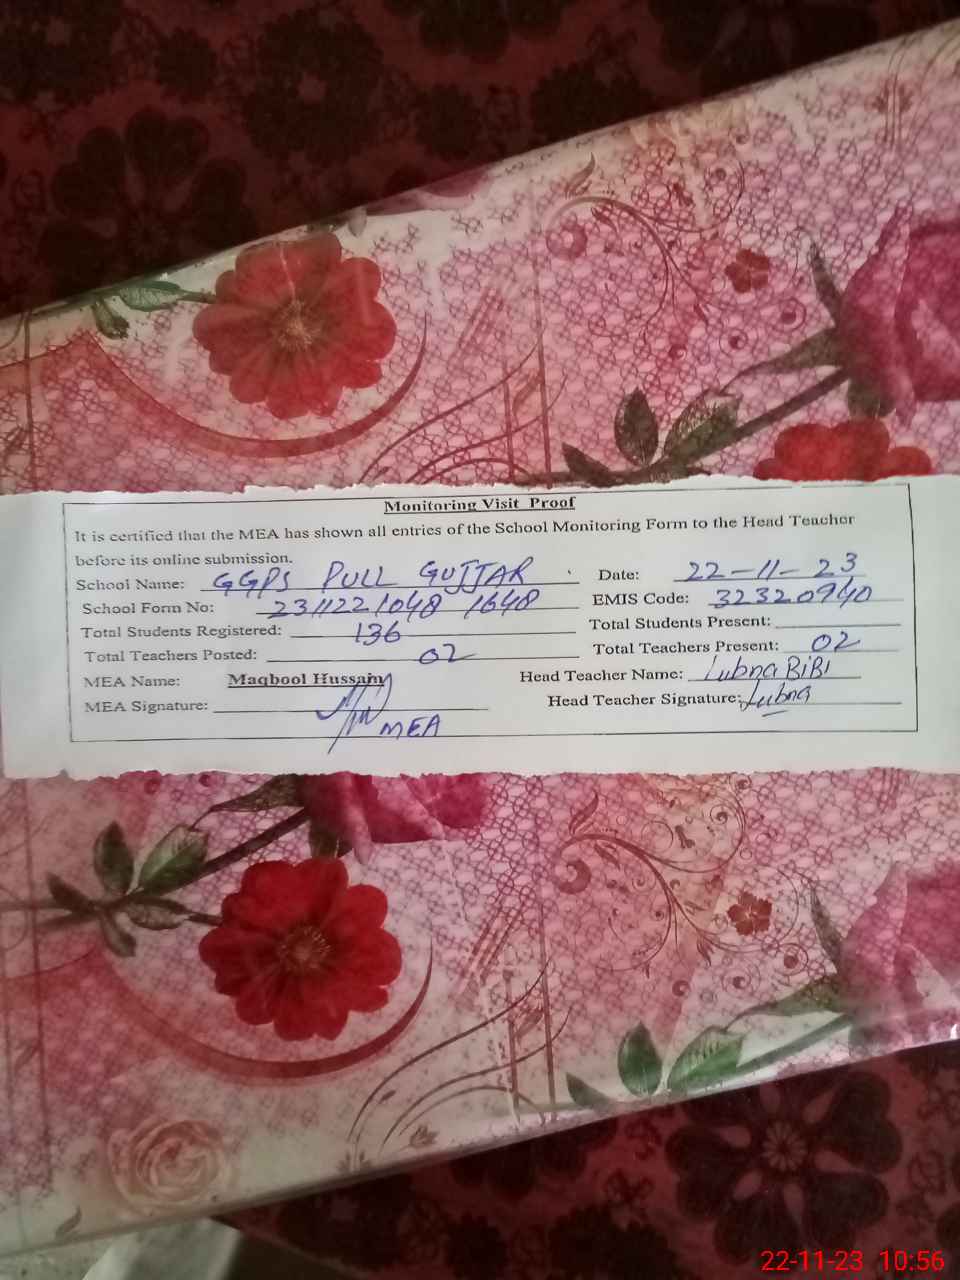 Monitoring Visit Proof
It is certified that the MEA has shown all entries of the School Monitoring Form to the Head Teacher
before its online submission.
School Name: GGPS PULL GUJJAR Date: 22-11-23
School Form No: 2311221048 1648 EMIS Code: 32320940
Total Students Registered: 136 Total Students Present:
Total Teachers Posted: 02 Total Teachers Present: 02
MEA Name: Maqbool Hussain Head Teacher Name: Lubna BiBi
MEA Signature: Head Teacher Signature: Lubna
MEA
22-11-23 10:56